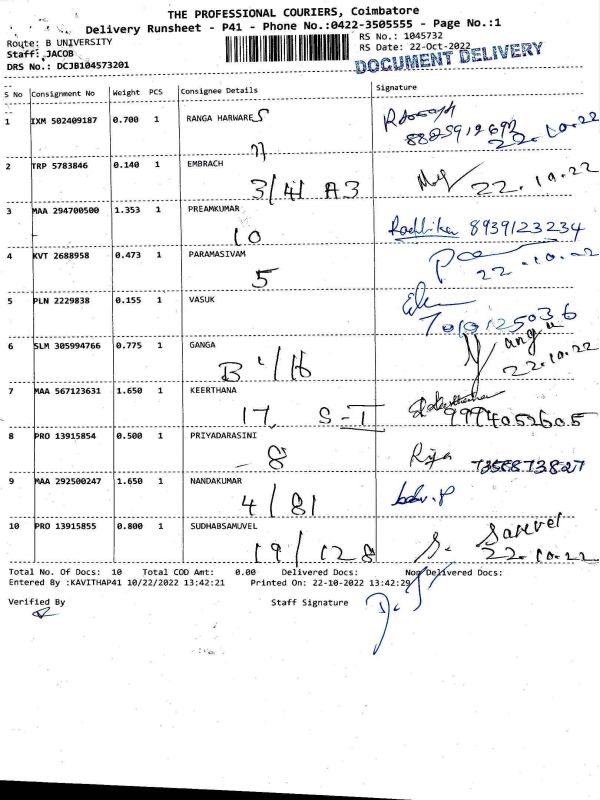 THE PROFESSIONAL COURIERS, Coimbatore
Delivery Runsheet - P41 - Phone No.:0422-3505555 - Page No.:1
Route: B UNIVERSITY
RS No.: 1045732
Staff: JACOB
RS Date: 22-Oct-2022
DRS No.: DCJB104573201
DOCUMENT DELIVERY
S No Consignment No Weight PCS Consignee Details Signature
1 IXM 502409187 0.700 1 RANGA HARWARES
22.10.22
2 TRP 5783846 0.140 1 EMBRACH
3/41 A3 22.10.22
3 MAA 294700500 1.353 1 PREAMKUMAR
10 Radhika 8939123234
4 KVT 2688958 0.473 1 PARAMASIVAM
5 22.10.22
5 PLN 2229838 0.155 1 VASUK
6 SLM 305994766 0.775 1 GANGA
22.10.22
7 MAA 567123631 1.650 1 KEERTHANA
17, S-I 9994052605
8 PRO 13915854 0.500 1 PRIYADARASINI
8 7358873827
9 MAA 292500247 1.650 1 NANDAKUMAR
4/81
10 PRO 13915855 0.800 1 SUDHABSAMUVEL
19/128 S. Samvel
22.10.22
Total No. Of Docs: 10 Total COD Amt: 0.00 Delivered Docs: Non Delivered Docs:
Entered By :KAVITHAP41 10/22/2022 13:42:21 Printed On: 22-10-2022 13:42:29
Verified By Staff Signature